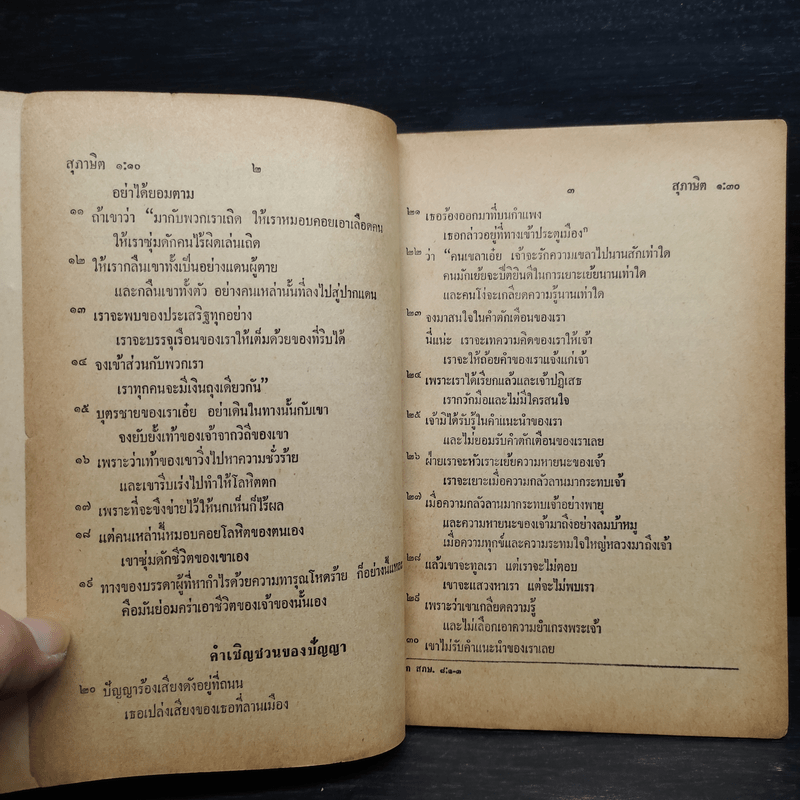 สุภาษิต ๑:๑๐
๒
อย่าได้ยอมตาม
๑๑ ถ้าเขาว่า “มากับพวกเราเถิด ให้เราหมอบคอยเอาเลือดคน
ให้เราซุ่มดักคนไร้ผิดเล่นเถิด
๑๒ ให้เรากลืนเขาทั้งเป็นอย่างแดนผู้ตาย
และกลืนเขาทั้งตัว อย่างคนเหล่านั้นที่ลงไปสู่ปากแดน
๑๓ เราจะพบของประเสริฐทุกอย่าง
เราจะบรรจุเรือนของเราให้เต็มด้วยของที่ริบได้
๑๔ จงเข้าส่วนกับพวกเรา
เราทุกคนจะมีเงินถุงเดียวกัน”
๑๕ บุตรชายของเราเอ๋ย อย่าเดินในทางนั้นกับเขา
จงยับยั้งเท้าของเจ้าจากวิถีของเขา
๑๖ เพราะว่าเท้าของเขาวิ่งไปหาความชั่วร้าย
และเขารีบเร่งไปทำให้โลหิตตก
๑๗ เพราะที่จะขึงข่ายไว้ให้นกเห็นก็ไร้ผล
๑๘ แต่คนเหล่านี้หมอบคอยโลหิตของตนเอง
เขาซุ่มดักชีวิตของเขาเอง
๑๙ ทางของบรรดาผู้ที่หากำไรด้วยความทารุณโหดร้าย ก็อย่างนี้แหละ
คือมันย่อมคร่าเอาชีวิตของเจ้าของนั้นเอง
คำเชิญชวนของปัญญา
๒๐ ปัญญาร้องเสียงดังอยู่ที่ถนน
เธอเปล่งเสียงของเธอที่ลานเมือง
๓
สุภาษิต ๑:๓๐
๒๑ เธอร้องออกมาที่บนกำแพง
เธอกล่าวอยู่ที่ทางเข้าประตูเมือง
๒๒ ว่า “คนเขลาเอ๋ย เจ้าจะรักความเขลาไปนานสักเท่าใด
คนมักเย้ยจะปีติยินดีในการเยาะเย้ยนานเท่าใด
และคนโง่จะเกลียดความรู้นานเท่าใด
๒๓ จงมาสนใจในคำตักเตือนของเรา
นี่แน่ะ เราจะเทความคิดของเราให้เจ้า
เราจะให้ถ้อยคำของเราแจ้งแก่เจ้า
๒๔ เพราะเราได้เรียกแล้วและเจ้าปฏิเสธ
เรากวักมือและไม่มีใครสนใจ
๒๕ เจ้ามิได้รับรู้ในคำแนะนำของเรา
และไม่ยอมรับคำตักเตือนของเราเลย
๒๖ ฝ่ายเราจะหัวเราะเย้ยความหายนะของเจ้า
เราจะเยาะเมื่อความกลัวลานมากระทบเจ้า
๒๗ เมื่อความกลัวลานมากระทบเจ้าอย่างพายุ
และความหายนะของเจ้ามาถึงอย่างลมบ้าหมู
เมื่อความทุกข์และความระทมใจใหญ่หลวงมาถึงเจ้า
๒๘ แล้วเขาจะทูลเรา แต่เราจะไม่ตอบ
เขาจะแสวงหาเรา แต่จะไม่พบเรา
๒๙ เพราะว่าเขาเกลียดความรู้
และไม่เลือกเอาความยำเกรงพระเจ้า
๓๐ เขาไม่รับคำแนะนำของเราเลย
ก สภษ. ๘:๑-๓